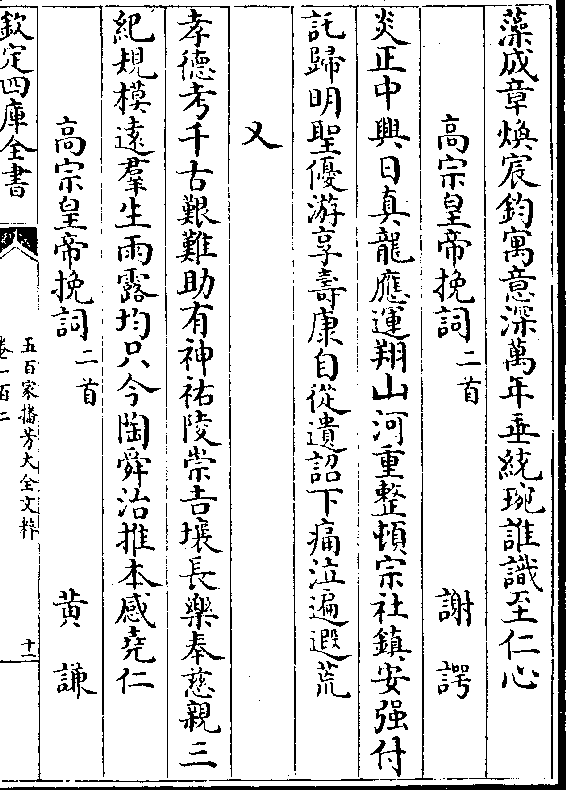 藻成章煥宸鈞寓意深萬年垂統琬誰識至仁心
高宗皇帝挽詞二首 謝諤
炎正中興日真龍應運翔山河重整頓宗社鎮安强付
託歸明聖優游享壽康自從遺詔下痛泣遍遐荒
又
孝德考千古艱難助有神祐陵崇吉壤長樂奉慈親三
紀規模遠羣生雨露均只今陶舜治推本感堯仁
高宗皇帝挽詞二首 黄謙
欽定四庫全書
五百家播芳大全文粹
卷一百二
十二